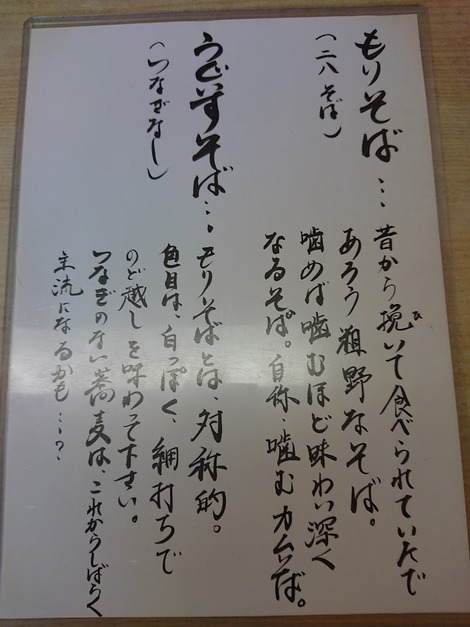 もりそば…
(二八そば)
昔から挽いて食べられていたで
ひ
あろう粗野なそば。
噛めば噛むほど味わい深く
なるそば。自称、噛む
うぐいすそば…
(つなぎなし)
もりそばとは、対称的。
色目は、白っぽく、細打ちで
のど越しを味わって下さい。
つなぎのない蕎麦は、これからしばらく
主流になるかも…?